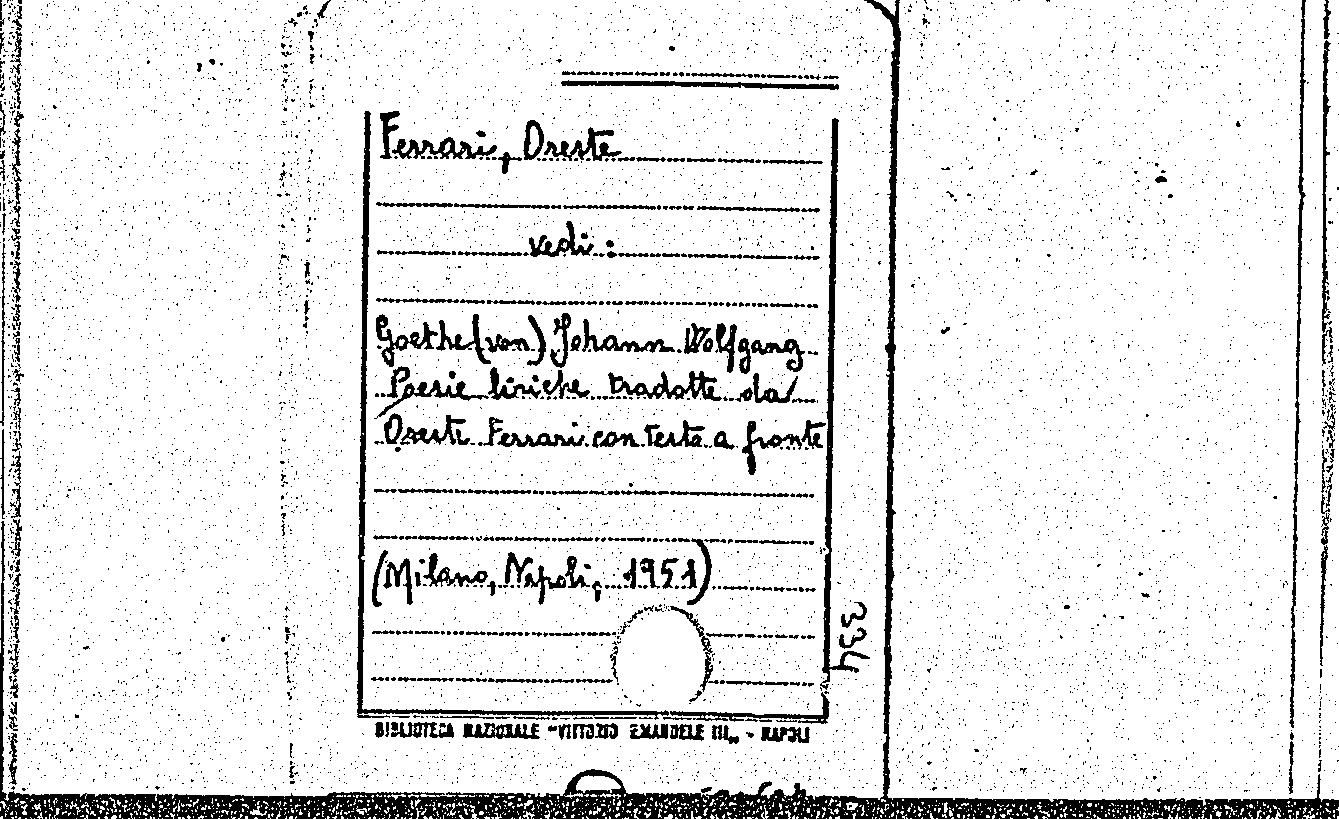 Ferrari, Oreste
vedi:
Goethe (von) Johann Wolfgang
Poesie liriche tradotte da
Oreste Ferrari con testo a fronte
(Milano, Napoli, 1951)
334
BIBLIOTECA NAZIONALE "VITTORIO EMANUELE III„ - NAPOLI